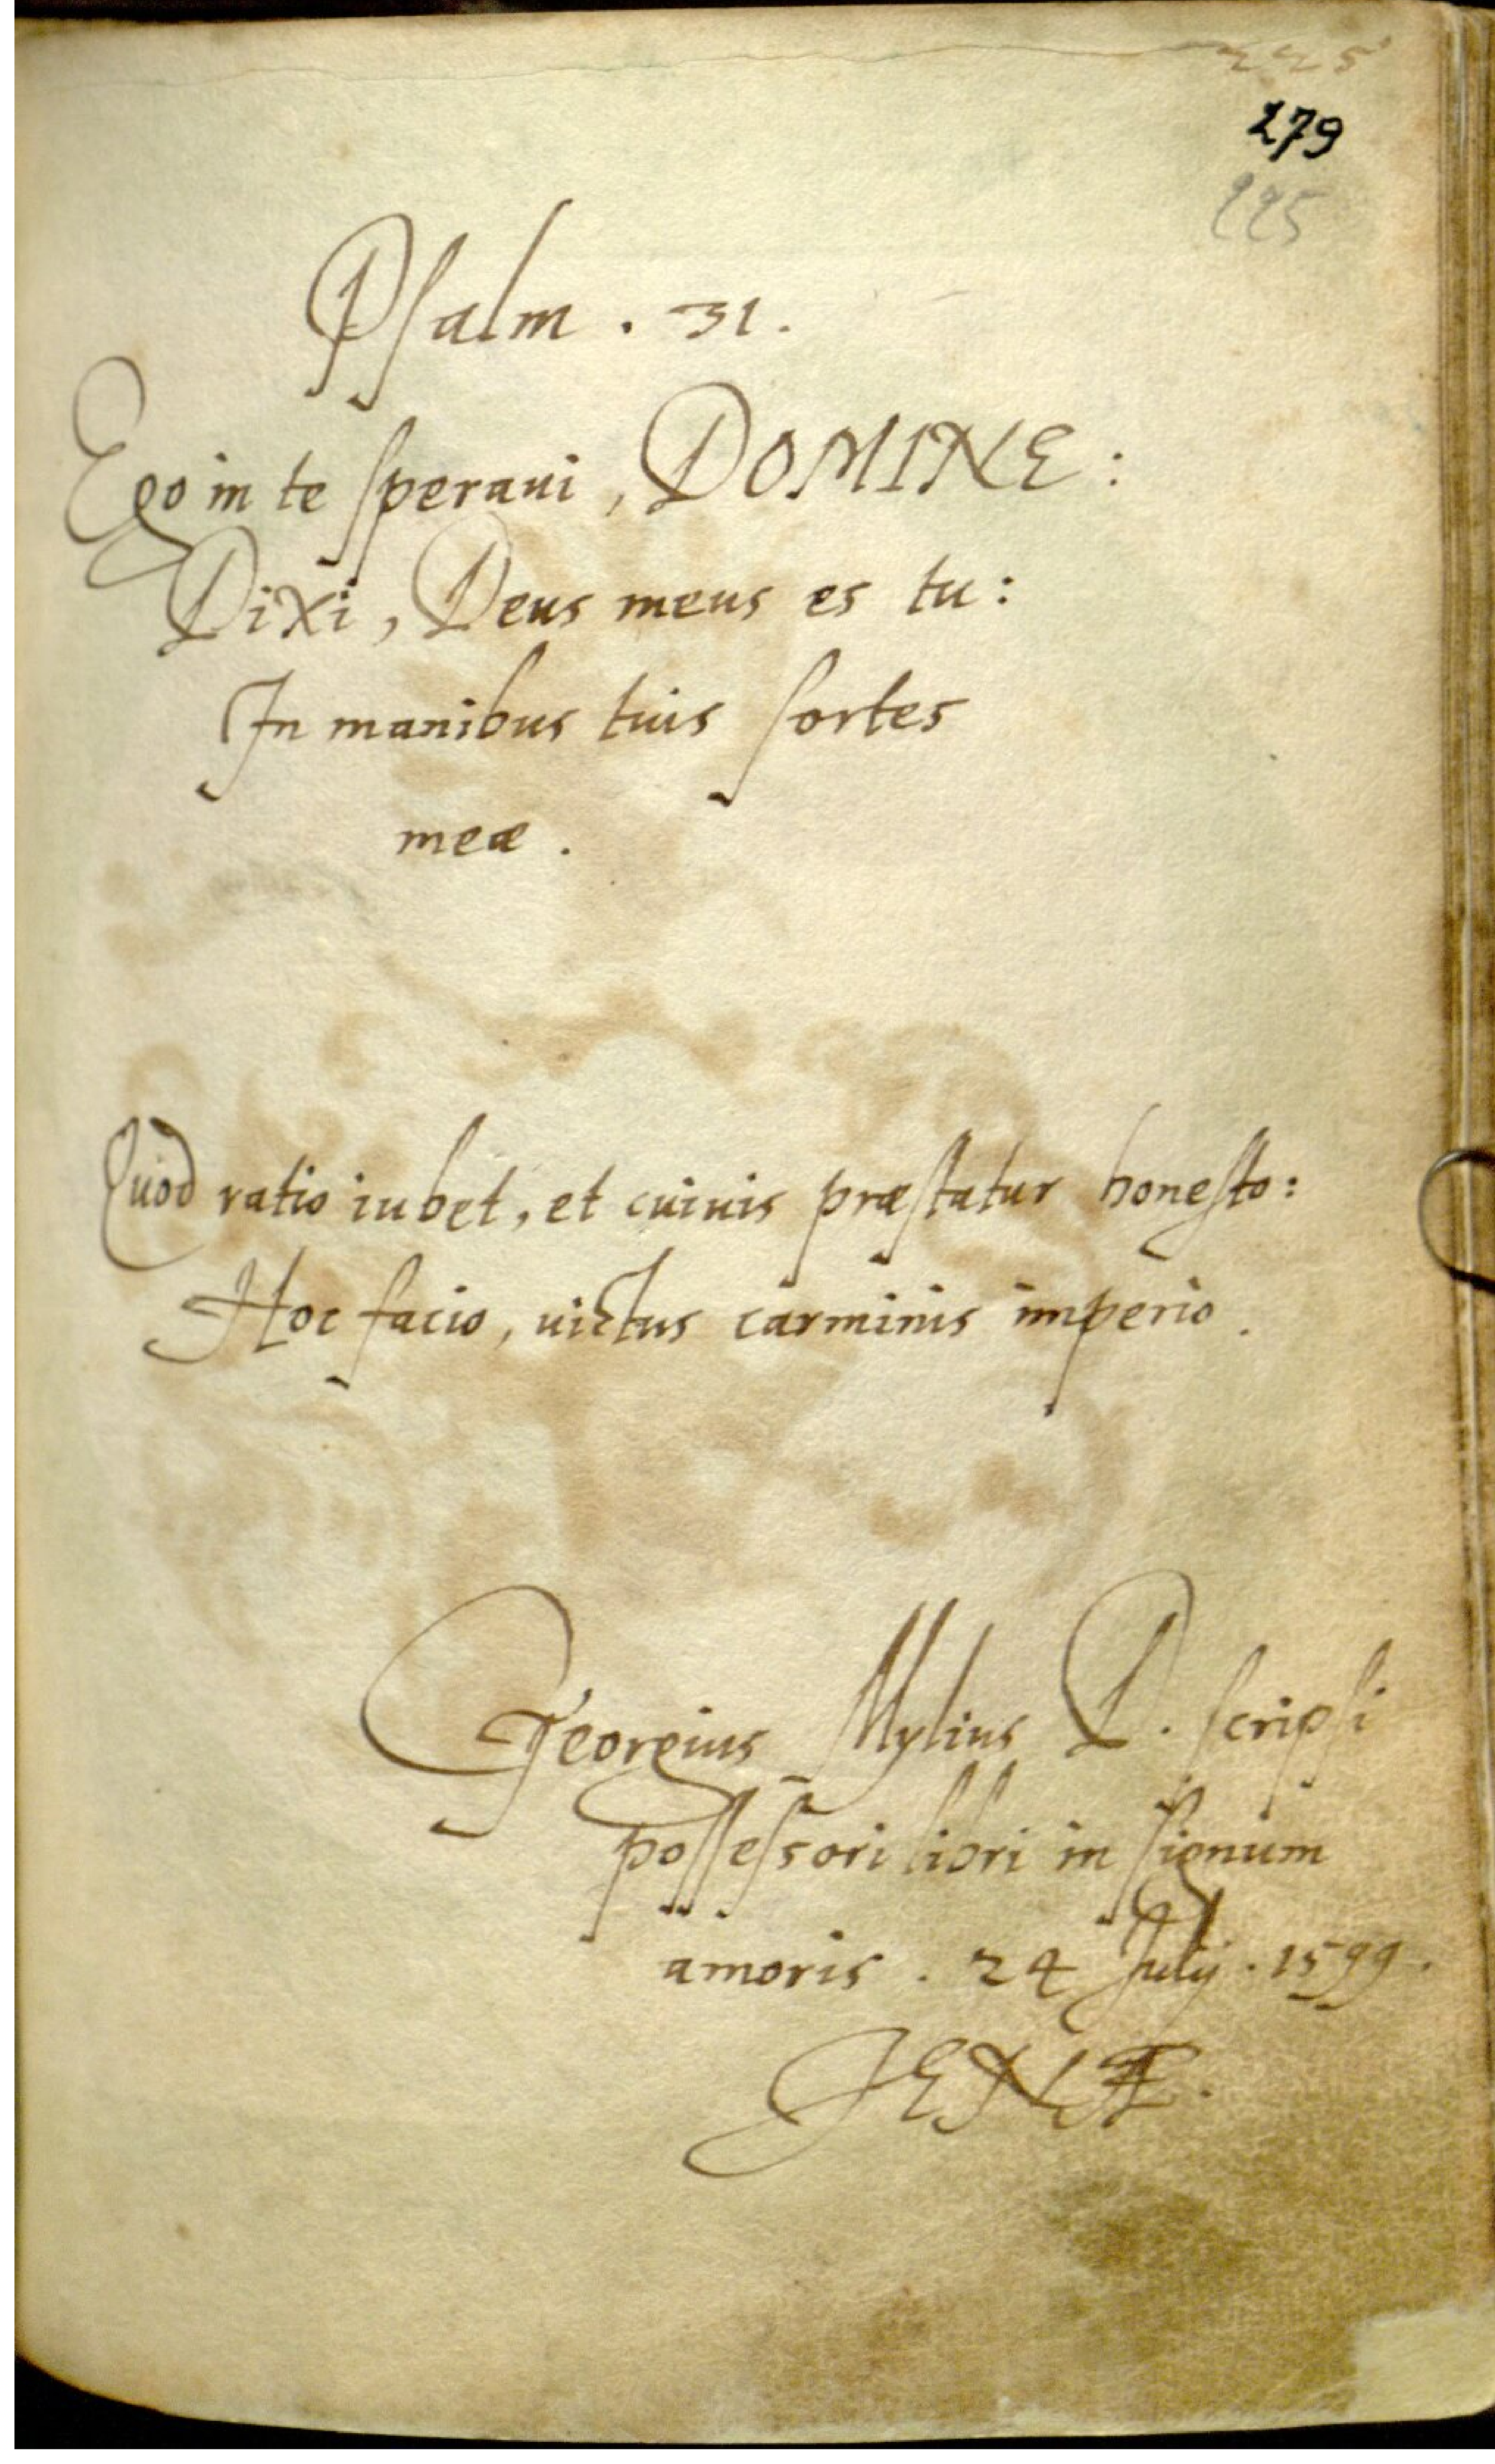 225
279
225
Psalm . 31.
Ego in te speraui, DOMINE:
Dixi, Deus meus es tu:
In manibus tuis sortes
meæ .
Quod ratio iubet, et cuiuis præstatur honesto:
Hoc facio, uictus carminis imperio.
Georgius Mylius D. scripsi
possessori libri in signum
amoris . 24 Julij . 1599.
JENÆ.